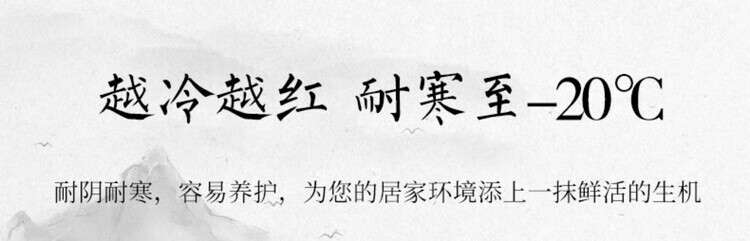 越冷越红 耐寒至-20℃
耐阴耐寒，容易养护，为您的居家环境添上一抹鲜活的生机